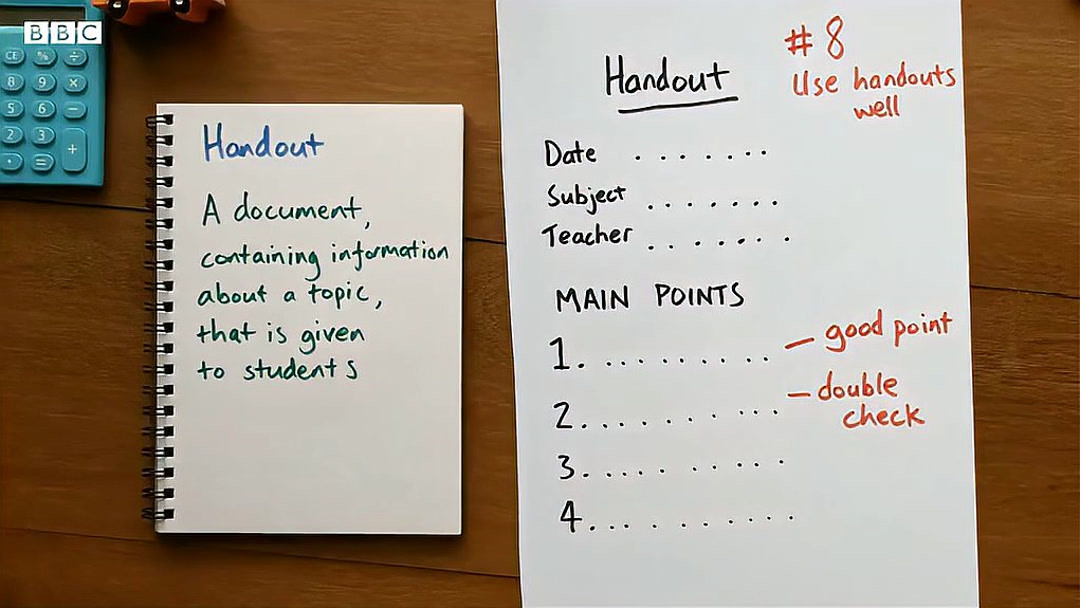 BBC
CE % ÷
8 9 ×
5 6 −
2 3 +
. =
Handout
A document,
containing information
about a topic,
that is given
to students
Handout
# 8
Use handouts
well
Date .......
Subject .......
Teacher .......
MAIN POINTS
1. ......... – good point
2. ......... – double
check
3. .........
4. .........